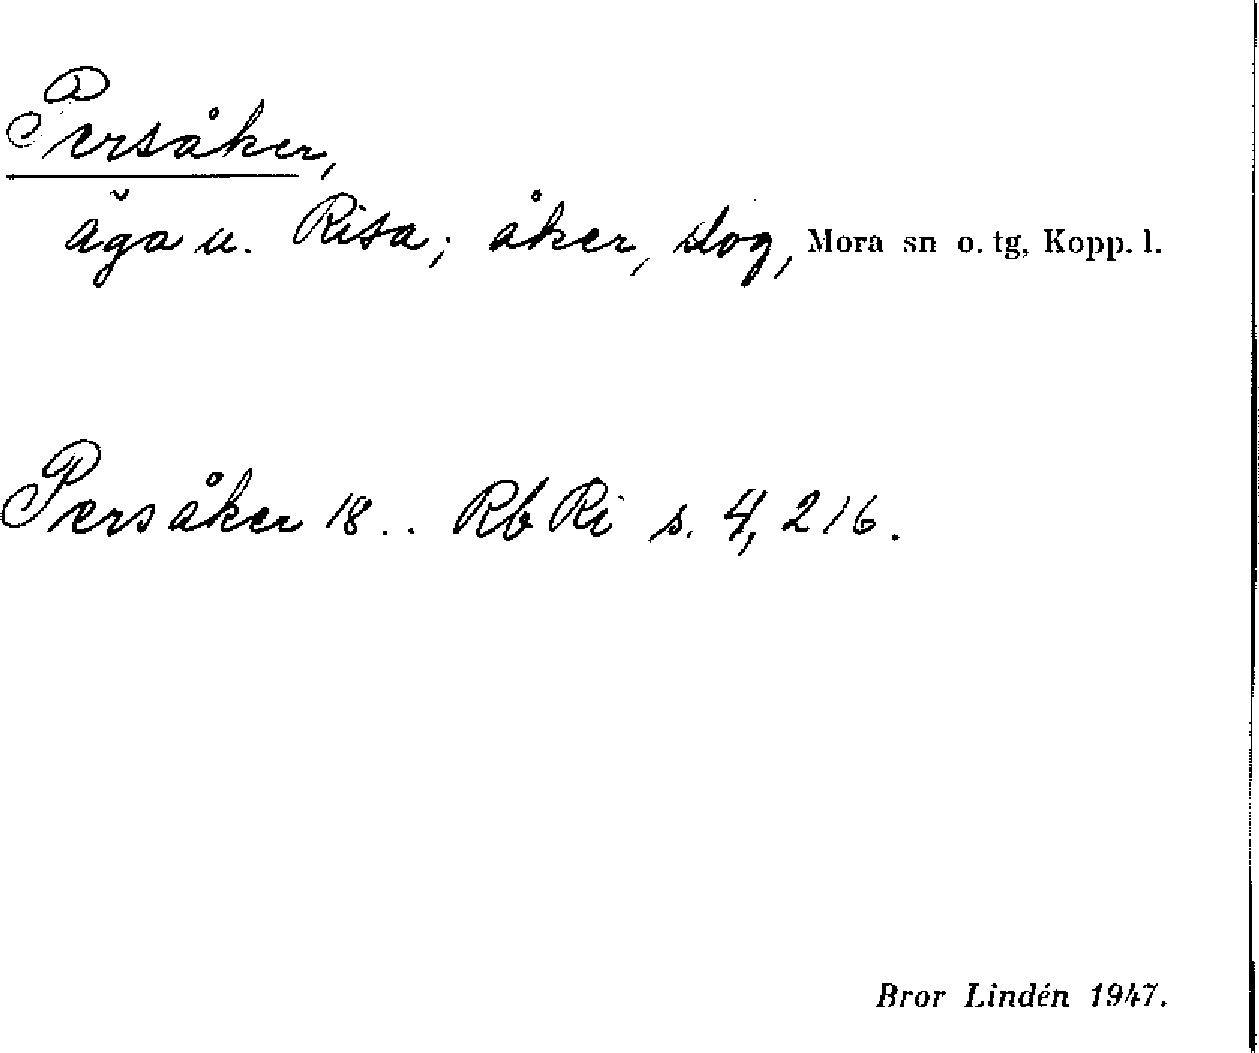 Persåker,
äga u. Risa; åker, slog, Mora sn o. tg, Kopp. l.
Persåker 18.. Rb Ri s. 4, 216.
Bror Lindén 1947.